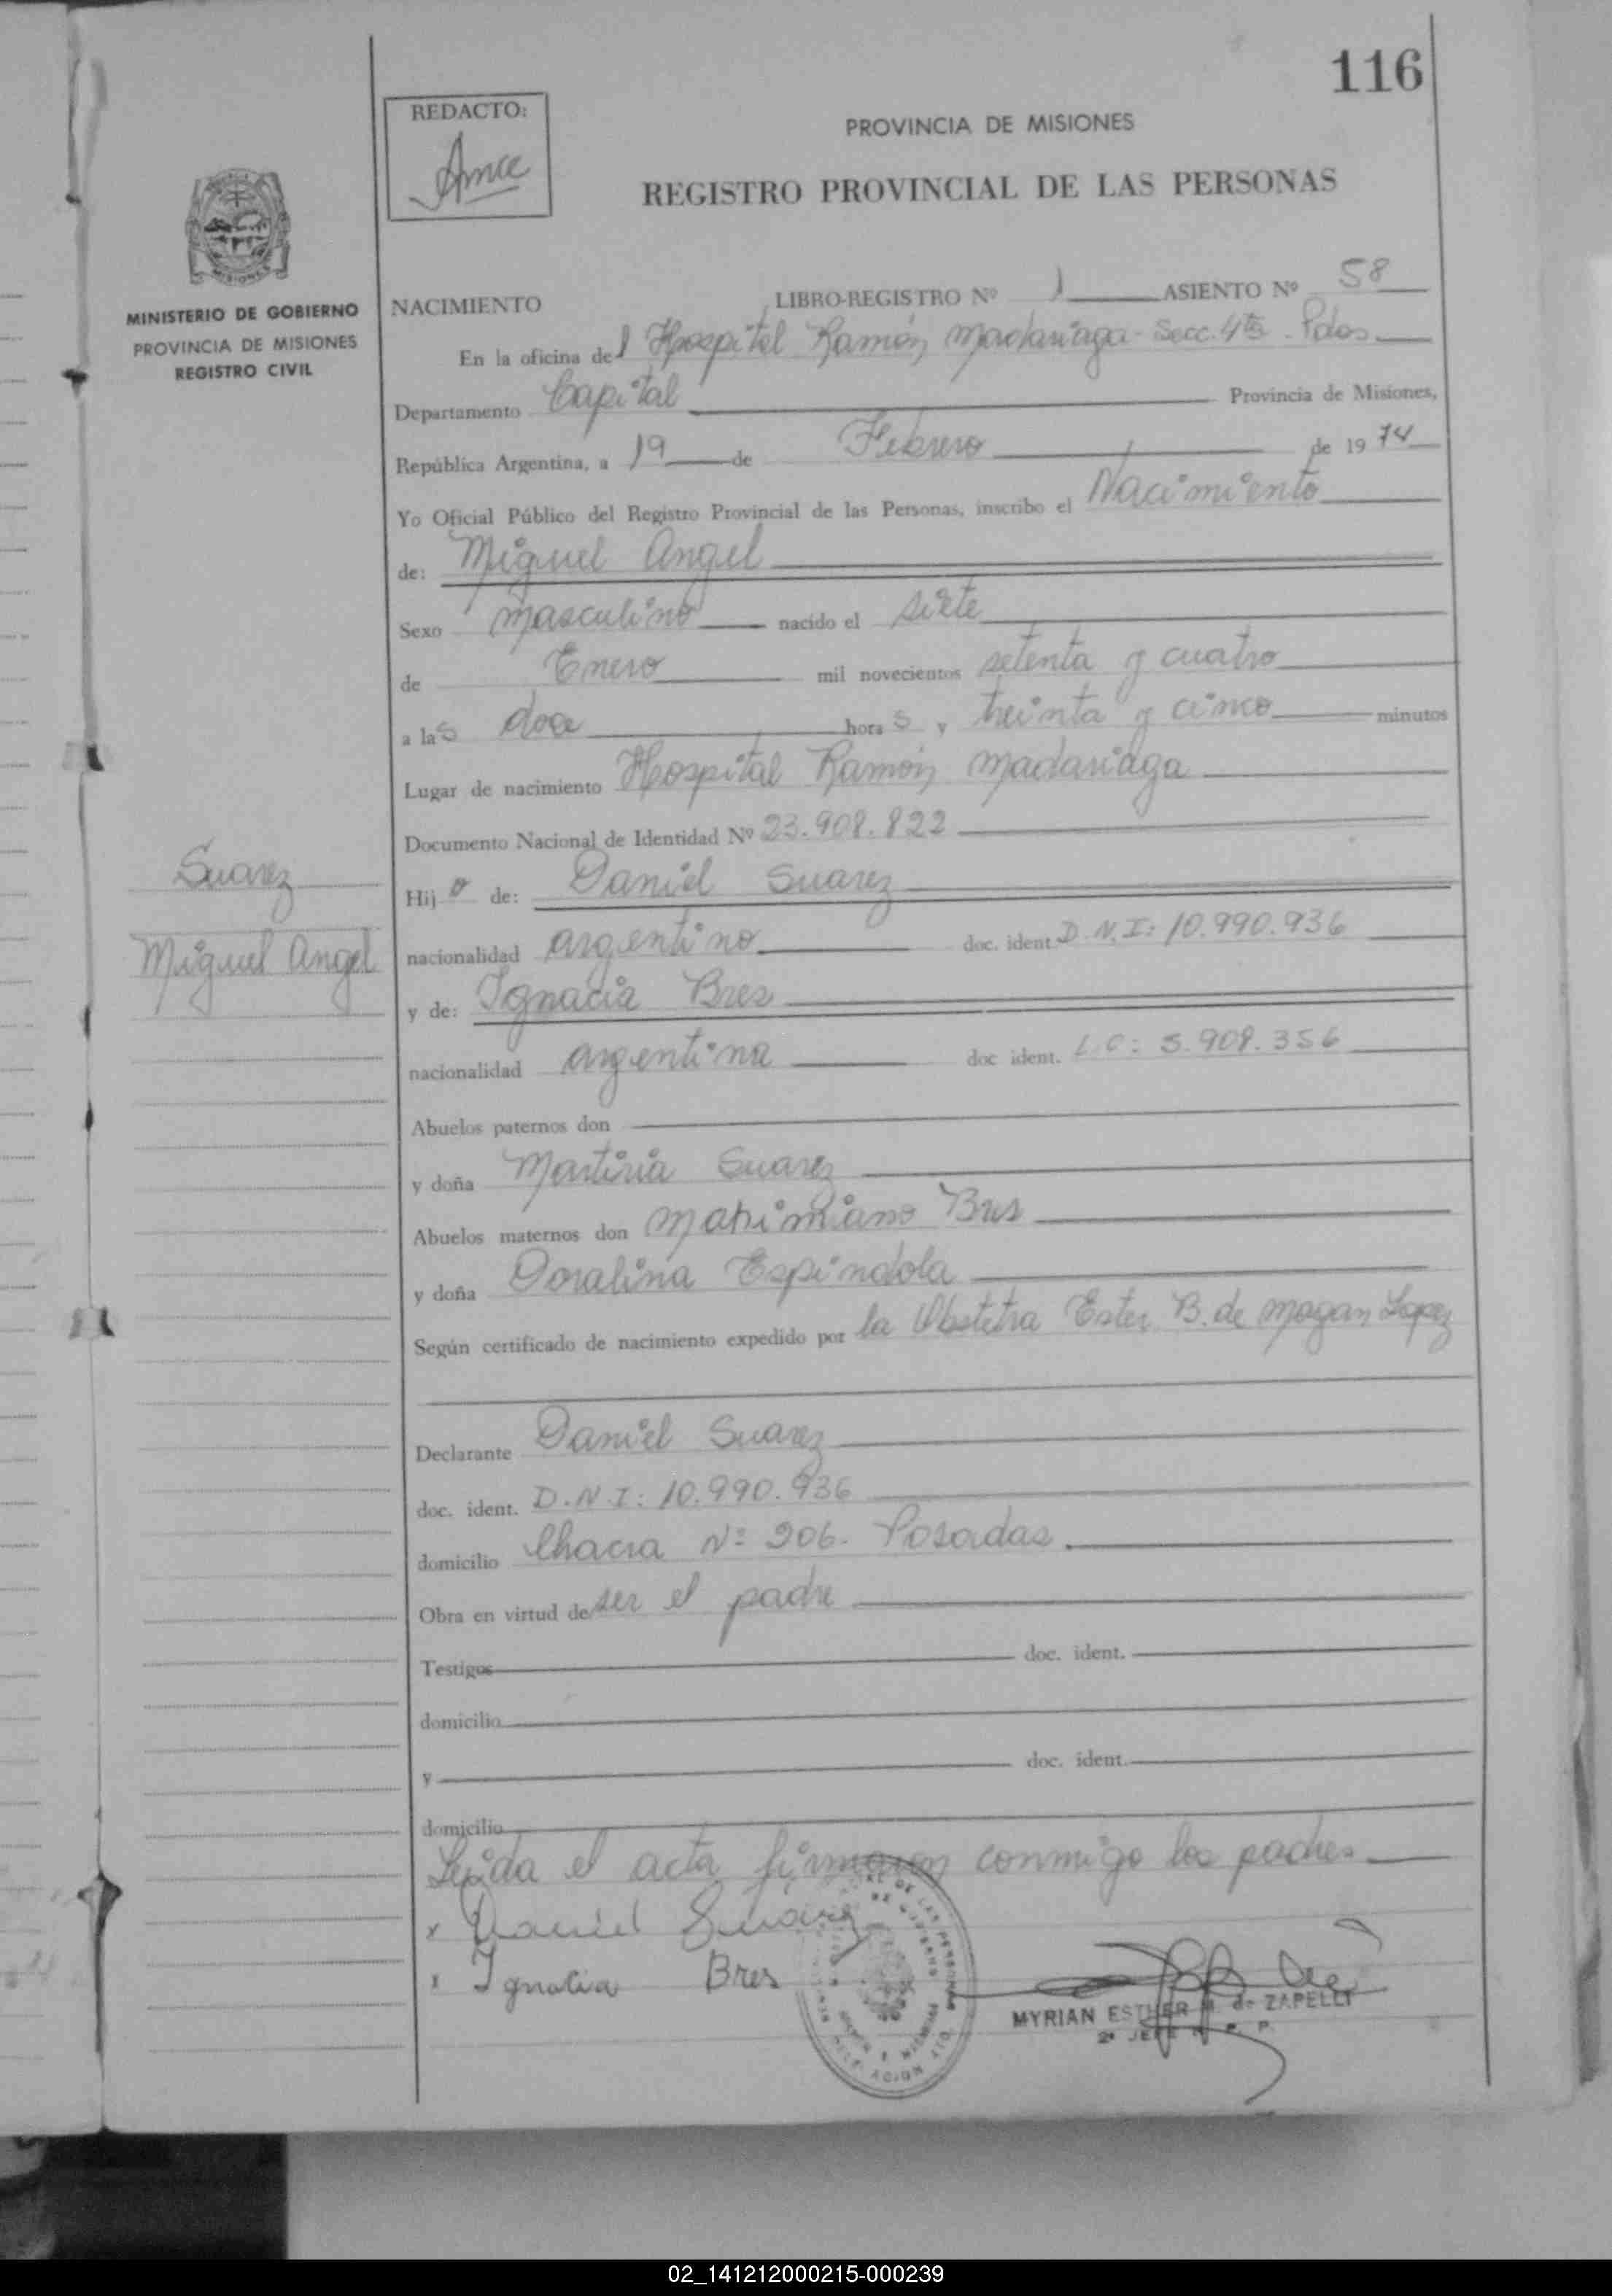 116
REDACTO:
PROVINCIA DE MISIONES
REGISTRO PROVINCIAL DE LAS PERSONAS
MINISTERIO DE GOBIERNO
PROVINCIA DE MISIONES
REGISTRO CIVIL
NACIMIENTO LIBRO-REGISTRO Nº 1 ASIENTO Nº 58
En la oficina del Hospital Ramón Madariaga - Secc. 4ta - Pdas
Departamento Capital Provincia de Misiones,
República Argentina, a 19 de Febrero de 1974
Yo Oficial Público del Registro Provincial de las Personas, inscribo el Nacimiento
de: Miguel Angel
Sexo masculino nacido el siete
de Enero mil novecientos setenta y cuatro
a las doce horas y treinta y cinco minutos
Lugar de nacimiento Hospital Ramón Madariaga
Documento Nacional de Identidad Nº 23.908.822
Suarez
Miguel Angel
Hijo de: Daniel Suarez
nacionalidad argentino doc. ident. D.N.I: 10.990.936
y de: Ignacia Bres
nacionalidad argentina doc ident. L.C: 5.908.356
Abuelos paternos don
y doña Martiria Suarez
Abuelos maternos don Bres
y doña Doralina Espindola
Según certificado de nacimiento expedido por la Obstetra Ester B. de Magan Lopez
Declarante Daniel Suarez
doc. ident. D.N.I: 10.990.936
domicilio Chacra Nº 206. Posadas.
Obra en virtud de ser el padre
Testigos doc. ident.
domicilio
y doc. ident.
domicilio
Leida el acta firmaron conmigo los padres
x Daniel Suárez
x Ignacia Bres
MYRIAN ESTHER de ZAPELLI
2º JEFE
02_141212000215-000239